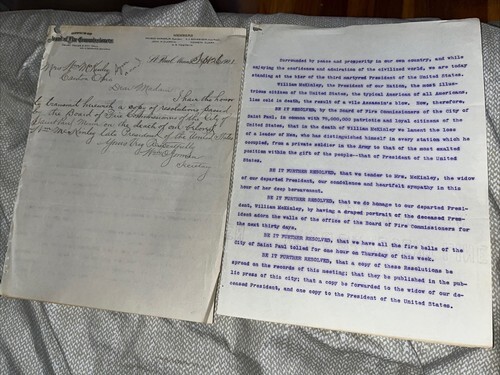 Board of Fire Commissioners
MEMBERS
St Paul, Minn
Mrs Wm McKinley
Canton Ohio
Dear Madam:
I have the honor
to transmit herewith a copy of resolutions passed
by the Board of Fire Commissioners of the City of
Saint Paul, Minn. on the death of our beloved
Wm McKinley late President of the United States
Yours Very Respectfully
Secretary
Surrounded by peace and prosperity in our own country, and while
enjoying the confidence and admiration of the civilized world, we are today
standing at the bier of the third martyred President of the United States.
William McKinley, the President of our Union, the most illus-
trious citizen of the United States, the typical American of all Americans,
lies cold in death, the result of a vile assassin's blow. Now, therefore,
BE IT RESOLVED, by the Board of Fire Commissioners of the City of
Saint Paul, in common with 70,000,000 patriotic and loyal citizens of the
United States, that in the death of William McKinley we lament the loss
of a leader of Men, who has distinguished himself in every station which he
occupied, from a private soldier in the Army to that of the most exalted
position within the gift of the people--that of President of the United
States.
BE IT FURTHER RESOLVED, that we tender to Mrs. McKinley, the widow
of our departed President, our condolence and heartfelt sympathy in this
hour of her deep bereavement.
BE IT FURTHER RESOLVED, that we do homage to our departed Presi-
dent, William McKinley, by having a draped portrait of the deceased Presi-
dent adorn the walls of the office of the Board of Fire Commissioners for
the next thirty days.
BE IT FURTHER RESOLVED, that we have all the fire bells of the
City of Saint Paul tolled for one hour on Thursday of this week.
BE IT FURTHER RESOLVED, that a copy of these Resolutions be
spread on the records of this meeting; that they be published in the pub-
lic press of this city; that a copy be forwarded to the widow of our de-
ceased President, and one copy to the President of the United States.